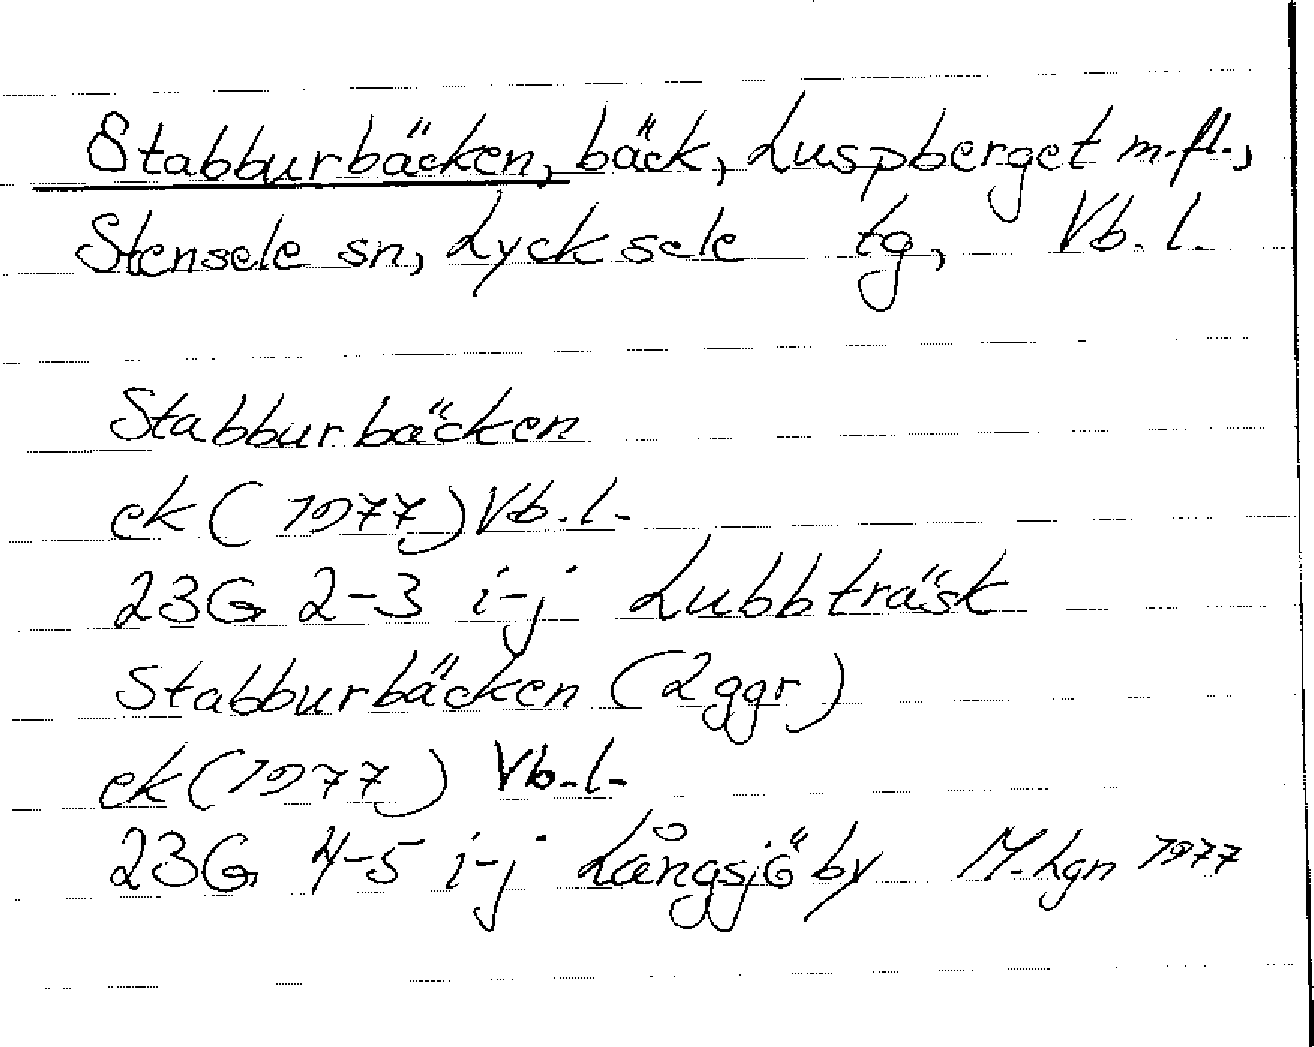 Stabburbäcken, bäck, Luspberget m.fl.,
Stensele sn, Lycksele tg, Vb. l.
Stabburbäcken
ek (1977) Vb. l.
23G 2-3 i-j Lubbträsk
Stabburbäcken (2 ggr)
ek (1977) Vb. l.
23G 4-5 i-j Långsjöby M. Lgn 1977